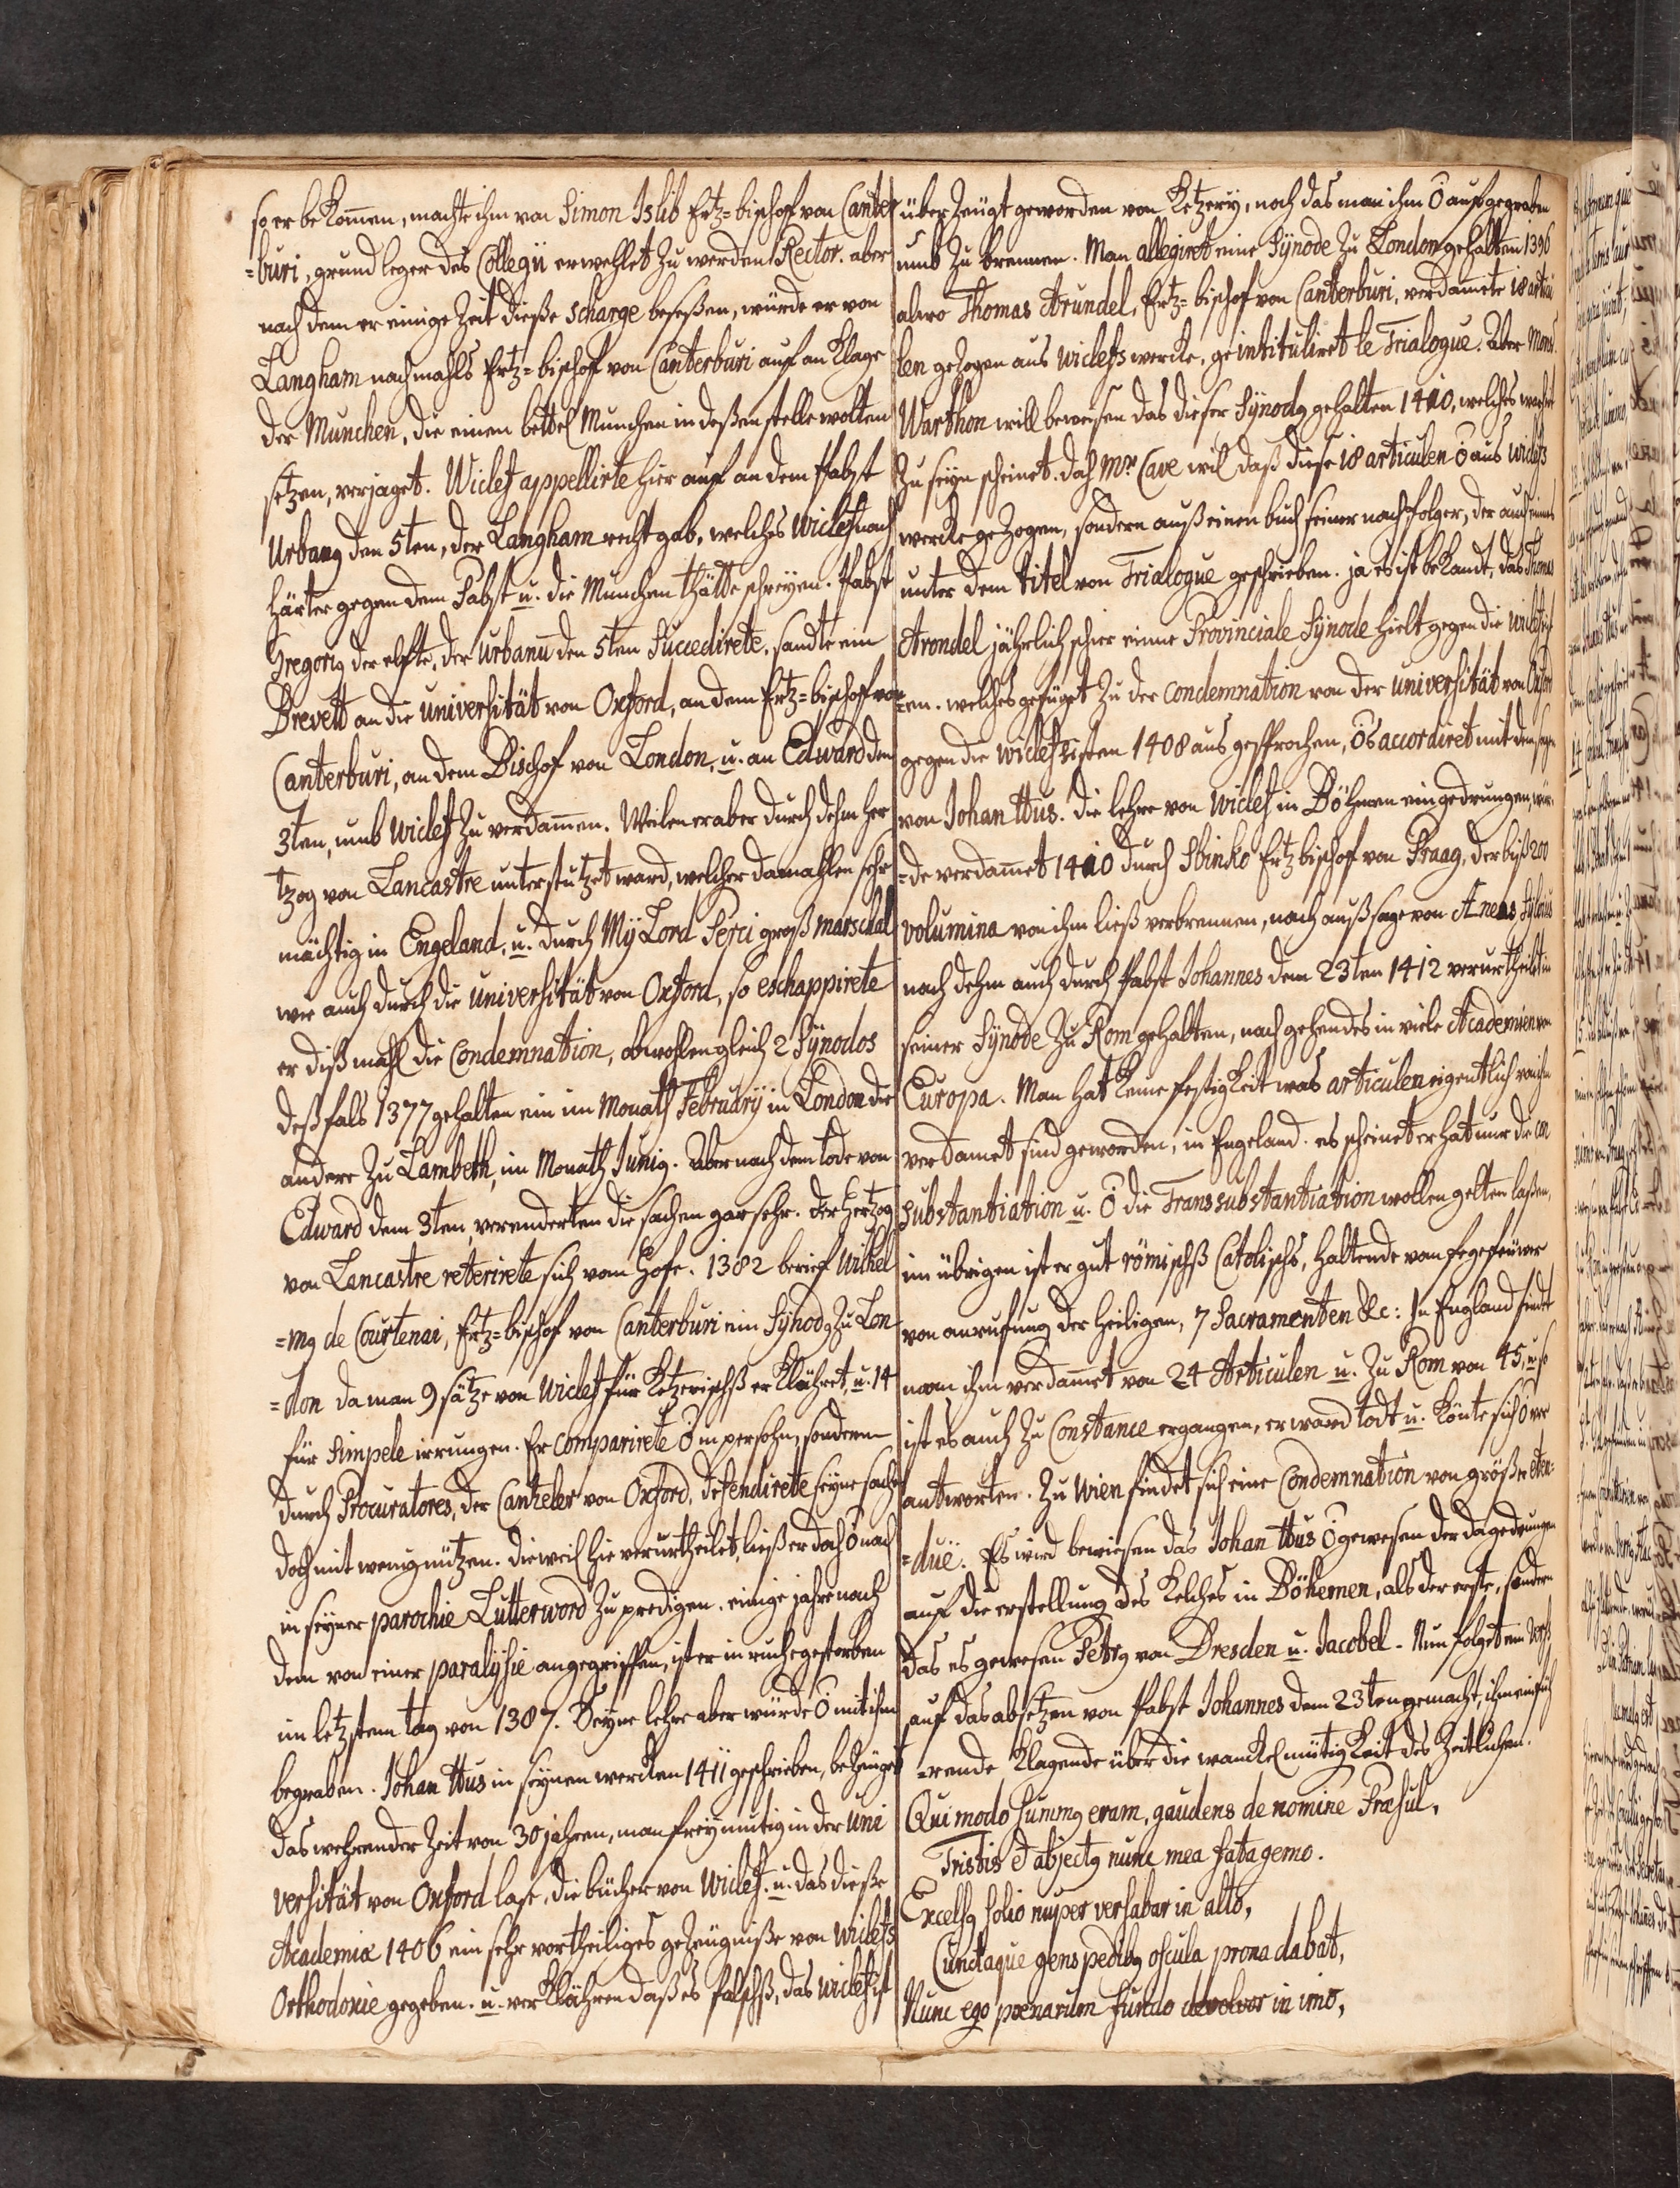 so er bekom̃en, machte ihm von Simon Islib Ertz=bischof von Canter
=buri, grund leger des Collegii erwehlet zu werden Rector. aber
nach dem er einige Zeit dieße scharge beseßen, würde er von
Langham nachmahls Ertz=bischof von Canterburi auf an Klage
der Munchen, die einen bettel Munchen in deßen stelle wolten
setzen, verjaget. Wiclef appellirte hier auf an dem Pabst
Urbanq den 5ten, der Langham recht gab, welches Wiclef noch
härter gegen dem Pabst u. die Munchen thätte schreyen. Pabst
Gregoriq der elfte, der Urbanū den 5ten Succedirete, sandte ein
Brevett an die Universität von Oxford, an dem Ertz=bischoff von
Canterburi, an dem Bischof von London, u. an Edward den
3ten, umb Wiclef zu verdam̃en. Weilen er aber durch dehm her
tzog von Lancastre unterstutzet ward, welcher damahlen sehr
mächtig in Engeland, u. durch Mÿ Lord Perci groß marschal
wie auch durch die Universität von Oxford, so eschappirete
er diß mahl die Condemnation, obwohlen gleich 2 Sÿnodos
deßfals 1377 gehalten ein im Monath Februarÿ in London die
andere zu Lambeth, im Monath Juniq. Aber nach dem tode von
Edward dem 3ten, verenderten die sachen gar sehr. der Hertzog
von Lancastre reterirete sich vom Hofe. 1382 berief Wilhel
=mq de Courtenai, Ertz=bischof von Canterburi ein Sÿnodq zu Lon
=don da man 9 sätze von Wiclef für Ketzerischß erklähret, u. 14
für Simpele irrungen. Er comparirete Ō in persohn, sondern
durch Procuratores, der Cantzeler von Oxford, defendirete seyne sache
doch mit wenig nutzen. dieweil hie verurtheilet, ließ er doch Ō nach
in seyner parochie Lutterword zu predigen. einige jahre nach
dem von einer paralÿsie angegriffen, ist er in ruhe gestorben
im letzstem tag von 1387. Seyne lehre aber würde Ō mit ihm
begraben. Johan Hus in seynen wercken 1411 geschrieben, bezeüget
das wehrender Zeit von 30 jahren, man freymutig in der Uni
versität von Oxford lase, die bücher von Wiclef. u. das dieße
Academiæ 1406 ein sehr vortheiliges gezeügniße von Wiclefs
Orthodoxie gegeben. u. verklähren daß es falschß, das Wiclef ist
überzeügt geworden von Ketzery, noch das man ihm Ō aufgegraben
umb zu brennen. Man allegiret eine Sÿnode zu London gehalten 1396
alwo Thomas Arundel, Ertz=bischof von Canterburi, verdam̃ete 18 articu
len gezogen aus Wiclefs wercke, geintituliret le Trialogue. Aber Mons.
Warthon will beweisen das dieser Sÿnodq gehalten 1410, welches wahrer
zu seyn scheinet. dah Mr. Cave wil daß diese 18 articulen Ō aus Wiclefs
wercke gezogen, sondern auß einen buch seiner nachfolger, der auch eines
unter dem titel von Trialogue geschrieben. ja es ist bekandt, das Thomas
Arondel jährlich schier einne Provinciale Sÿnode hielt gegen die Wiclefist
=en. welches gefüget zu der Condemnation von der Universität von Oxford
gegen die Wiclefisten 1408 ausgesprochen, Ōs accordiret mit dem sagen
von Johan Hus. die lehre von Wiclef in Böhmen eingedrungen, wür-
=de verdam̃et 1410 durch Sbinko Ertzbischof von Praag, der biß 200
volumina von ihm ließ verbrennen, nach aussage von Æneas Sylvius
nach dehm auch durch Pabst Johannes dem 23ten 1412 verurtheilt in
seiner Sÿnode zu Rom gehalten, nach gehendes in viele Academien von
Europa. Man hat keine festigkeit was articulen eigentlich von ihm
verdam̃et sind geworden, in Engeland. es scheinet er hat nur die con
substantiation u. Ō die Transsubstantiation wollen gelten laßen,
im übrigen ist er gut römischß Catolischs, haltende vom fegefeüwer
von anrufung der heiligen, 7 Sacramenten &c: In England findt
man ihm verdam̃et von 24 Articulen u. zu Rom von 45, u. so
ist es auch zu Constance ergangen, er ward todt u. könte sich Ō ver
antworten. Zu Wien findet sich eine Condemnation von größer eten=
=düe. Es wird bewiesen das Johan Hus Ō gewesen der da gedrungen
auf die erstellung des Kelches in Böhemen, als der erste, sondern
das es gewesen Petrq von Dresden u. Jacobel. Nun folget ein Vers
auf das absetzen von Pabst Johannes dem 23ten gemacht, ihm einfüh
=rende klagende über die wanckelmütigkeit des Zeitlichen.
Qui modo summq eram, gaudens de nomine Præsul,
Tristis et abjectq nunc mea fata gemo.
Excelsq solio nuper versabar in alto,
Cunctaque gens pedibq oscula prona dabat,
Nunc ego pœnarum fundo devolvor in imo,